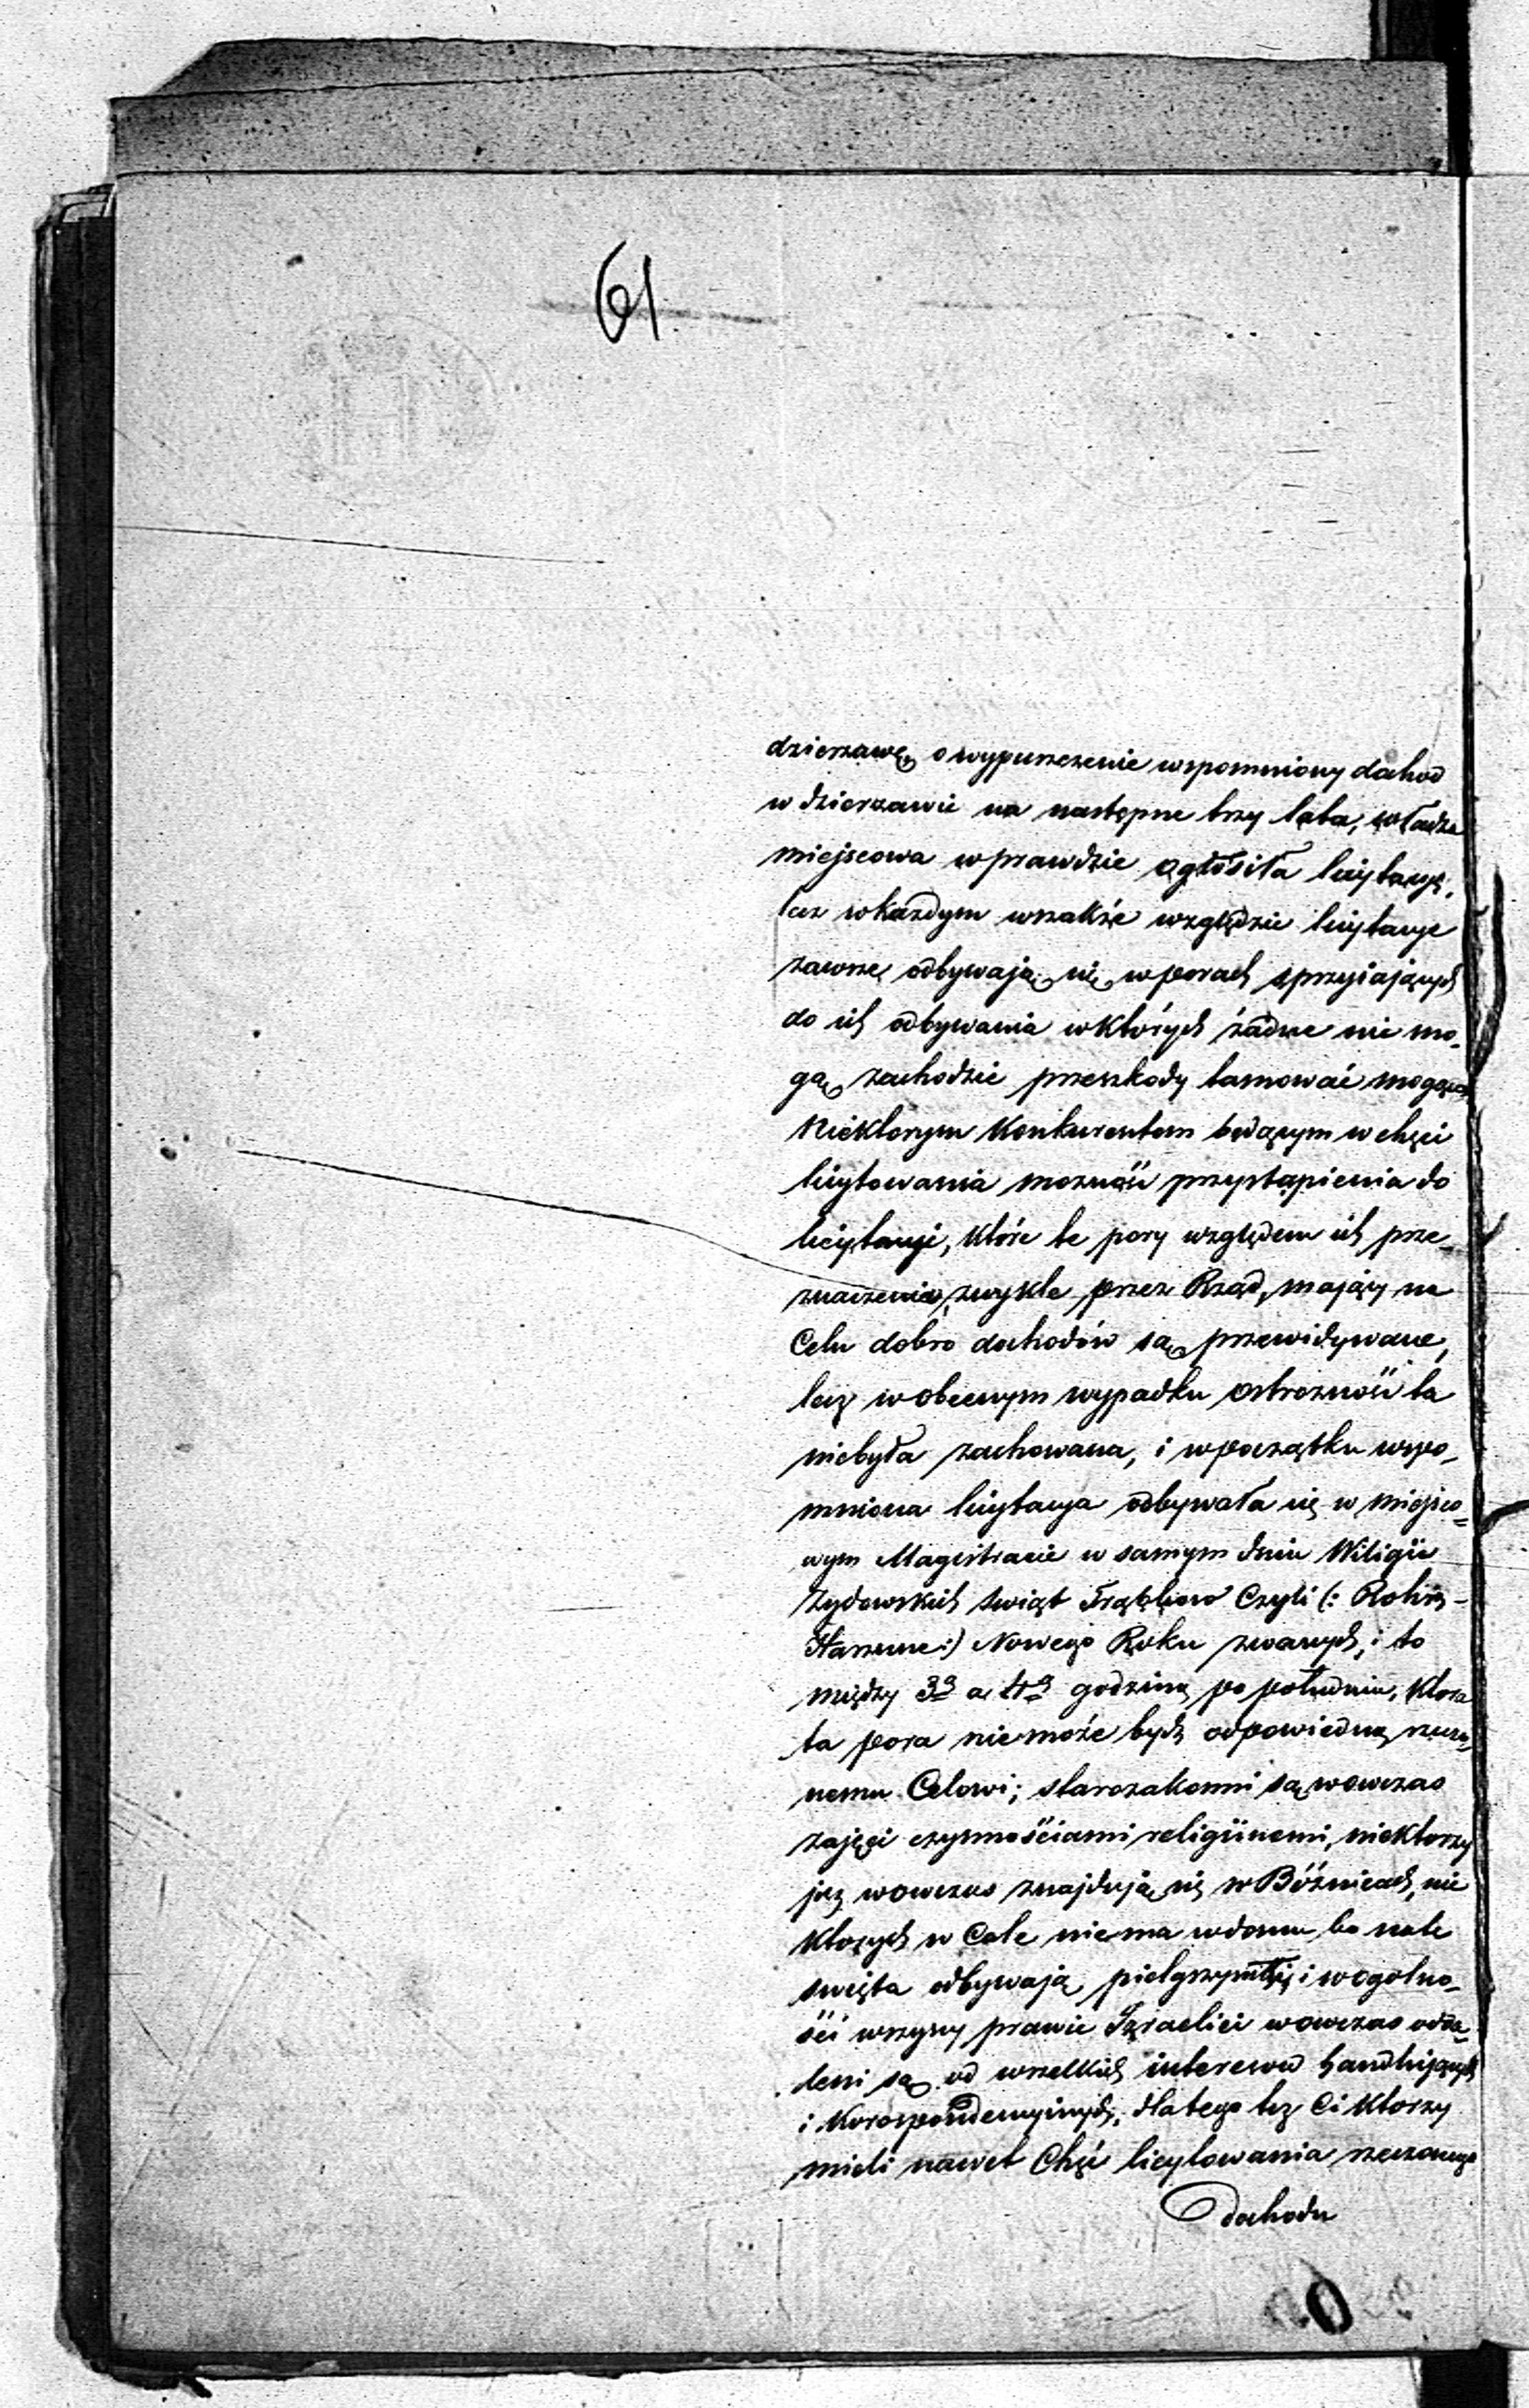 61
dzierzawę, o wypuszczenie wspomniony dochod
w dzierzawie na następne trzy lata, władza
miejscowa wprawdzie ogłosiła licytacyę,
lecz wkazdym wszakże względzie licytacye
zawsze odbywają się w porach sprzyiających
do ich odbywania wktórych żadne nie mo-
gą zachodzić przeszkody tamować mogące
Niektorym Konkurentom będącym w chęci
licytowania mozność przystąpienia do
licytacyi, które te pory względem ich prze-
znaczenia, zwykle przez Rząd, mający na
Celu dobro dochodów są przewidywane,
lecz w obecnym wypadku ostrozność ta
niebyła zachowana, i wpoczątku wspo-
mniona licytacya odbywała się w miejsco-
wym Magistracie w samym dniu Wiligii
Zydowskich swiąt Trąbkowo Czyli (: Rohsz-
Haszune :) Nowego Roku zwanych, i to
między 3ą a 4ą godziną po południu, Ktora
ta pora niemoże bydz odpowiedną rzeczo-
nemu Celowi; starozakonni są wowczas
zajęci czynnościami religiinemi, niektorzy
juz wowczas znajdują się w Bóżnicach, nie
ktorych w Cale niema wdomu bo na te
swięta odbywają pielgrzymkę i wogolno-
ści wszyscy prawie Izraelici wowczas odda-
leni są od wszelkich interesow handlujących
i Korospondencyinych, dlatego tez Ci Ktorzy
mieli nawet Chęć licytowania rzeczonego
dochodu